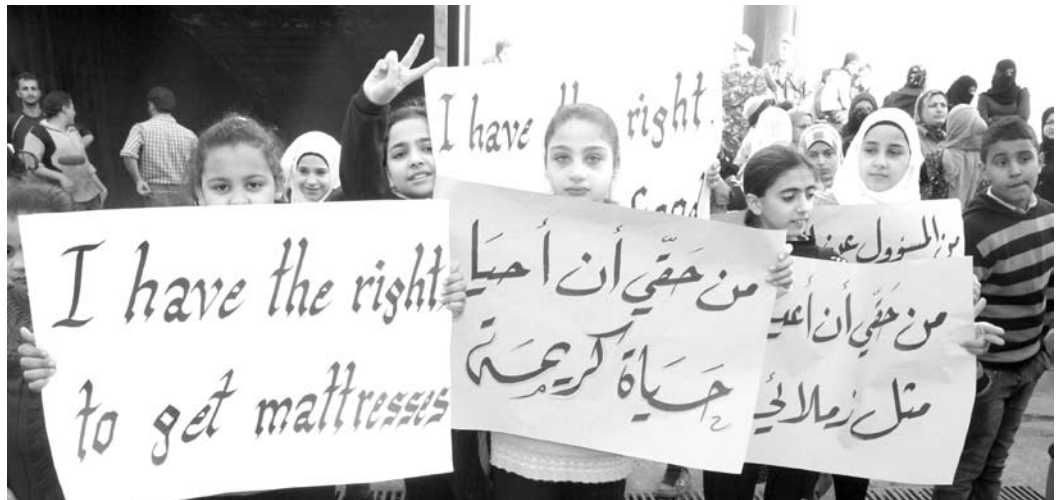 I have the right
to get mattresses
I have the right.
من حَقّي أن أحيَا
حَيَاة كريمَة
من المسؤول عن
من حَقّي أن أعيـ
مثل زملائي